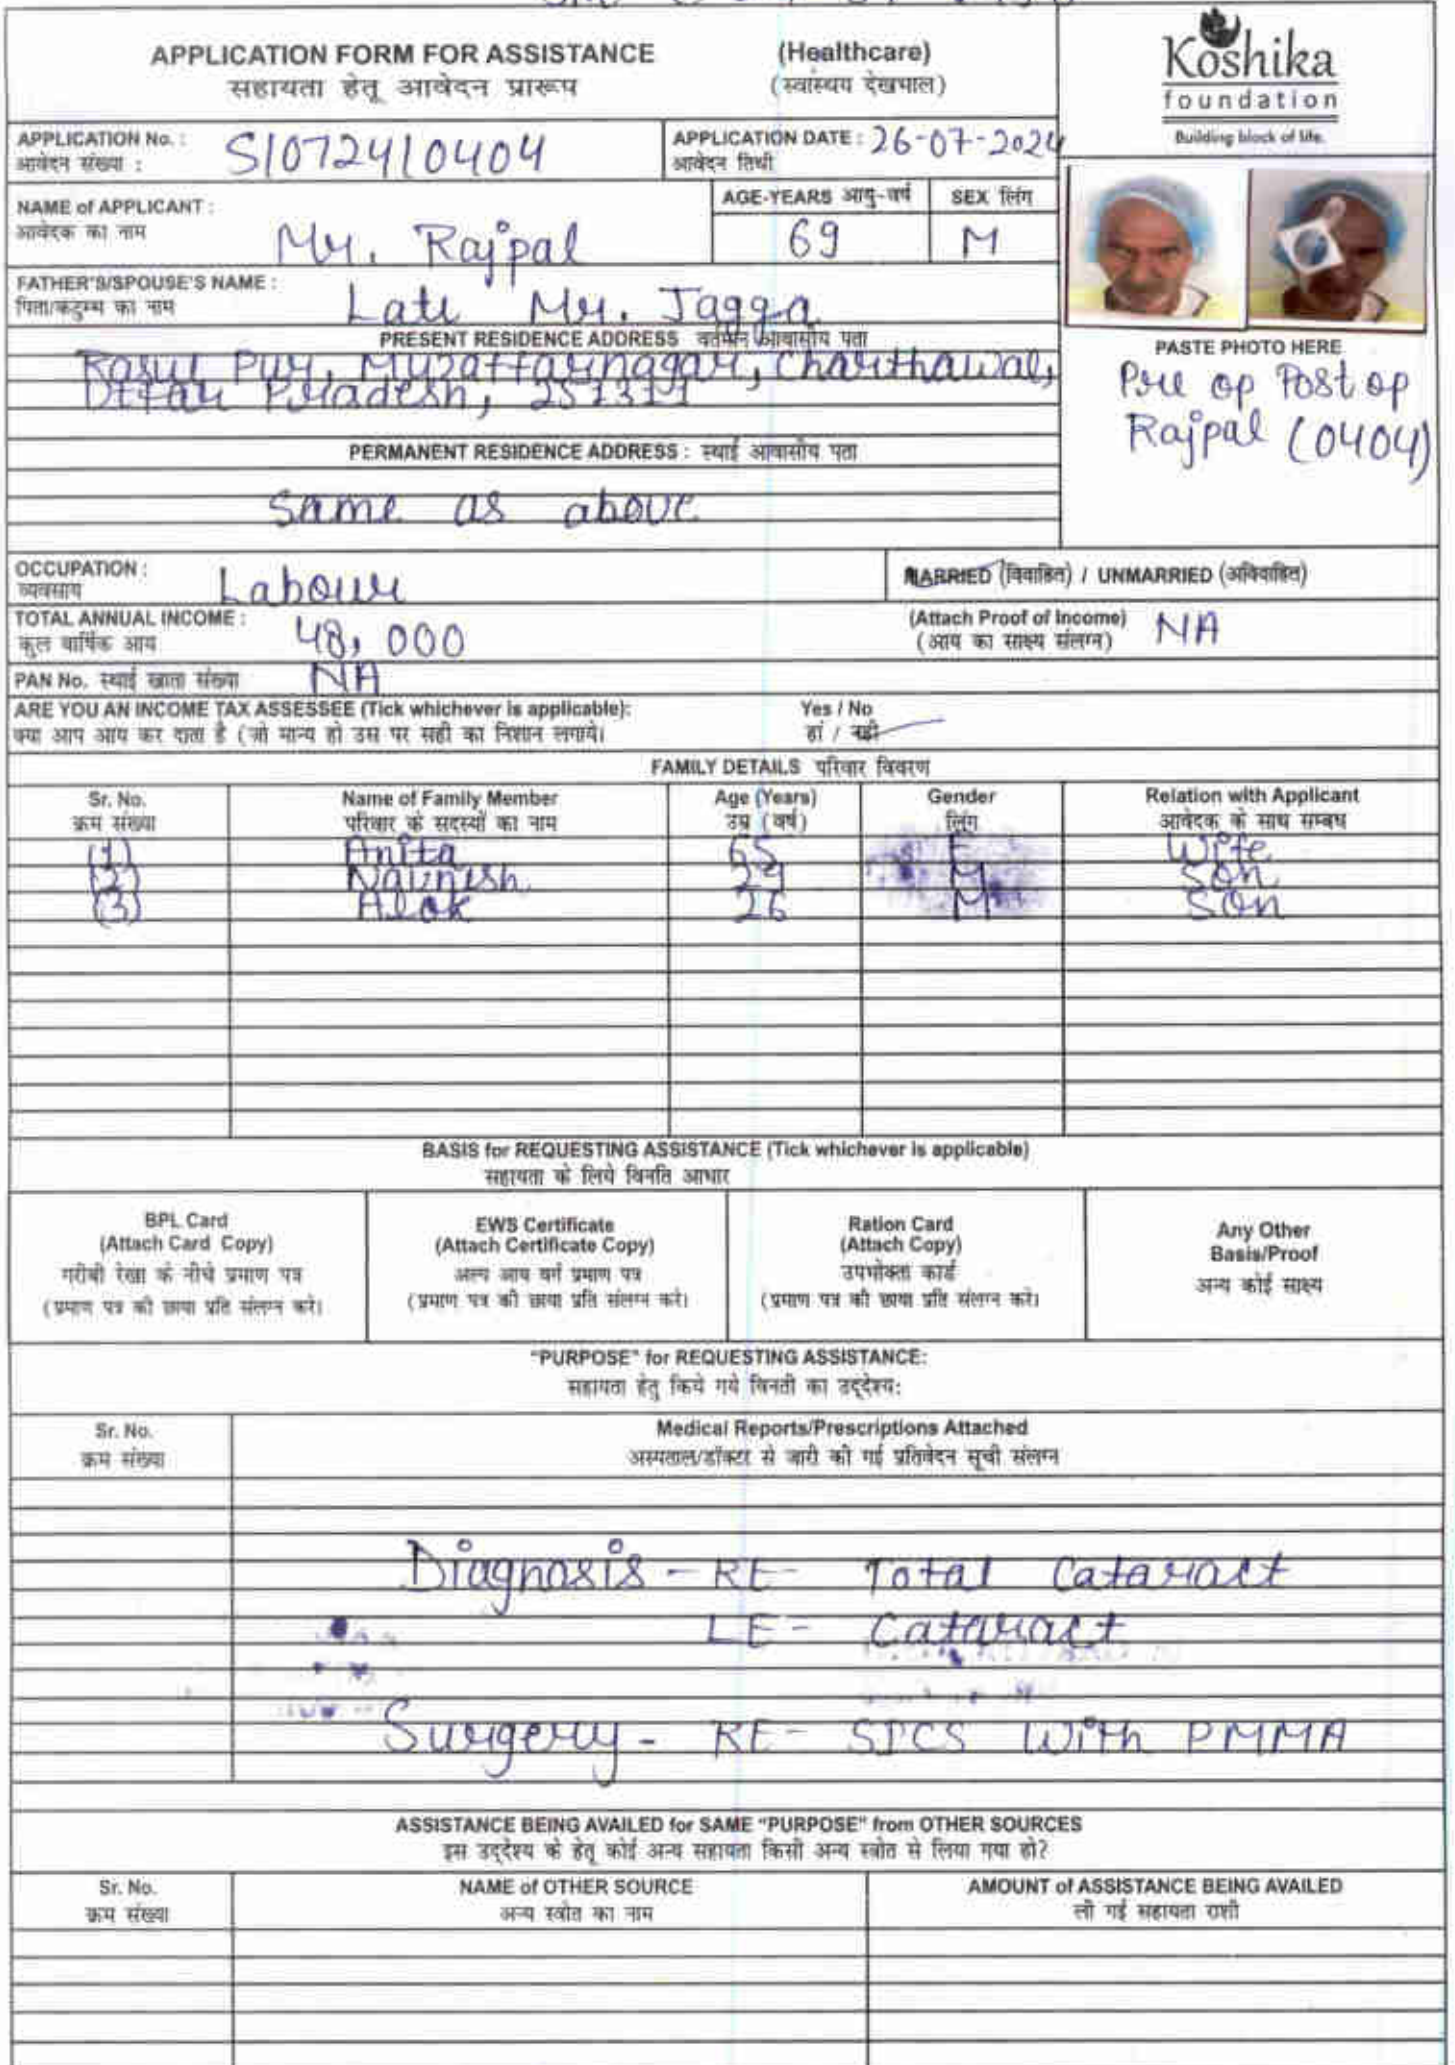 APPLICATION FORM FOR ASSISTANCE (Healthcare)
सहायता हेतू आवेदन प्रारूप (स्वास्थ्य देखभाल)
Koshika
foundation
Building block of life.
APPLICATION No. : S/0724/0404
आवेदन संख्या :
APPLICATION DATE : 26-07-2024
आवेदन तिथी
NAME of APPLICANT : Mr. Rajpal
आवेदक का नाम
AGE-YEARS आयु-वर्ष 69
SEX लिंग M
FATHER'S/SPOUSE'S NAME : Late Mr. Jagga
पिता/कटुम्ब का नाम
PRESENT RESIDENCE ADDRESS वर्तमान आवासीय पता
Rasul Pur, Muzaffarnagar, Charthawal,
Uttar Pradesh, 251311
PASTE PHOTO HERE
Pre op Post op
Rajpal (0404)
PERMANENT RESIDENCE ADDRESS : स्थाई आवासीय पता
Same as above
OCCUPATION : Labour
व्यवसाय
MARRIED (विवाहित) / UNMARRIED (अविवाहित)
TOTAL ANNUAL INCOME : 48,000
कुल वार्षिक आय
(Attach Proof of Income) NA
(आय का साक्ष्य संलग्न)
PAN No. स्थाई खाता संख्या NA
ARE YOU AN INCOME TAX ASSESSEE (Tick whichever is applicable): Yes / No
क्या आप आय कर दाता है (जो मान्य हो उस पर सही का निशान लगाये। हां / नही
FAMILY DETAILS परिवार विवरण
Sr. No. Name of Family Member Age (Years) Gender Relation with Applicant
क्रम संख्या परिवार के सदस्यों का नाम उम्र (वर्ष) लिंग आवेदक के साथ सम्बध
(1) Anita 65 F Wife
(2) Navnish 29 M Son
(3) Alok 26 M Son
BASIS for REQUESTING ASSISTANCE (Tick whichever is applicable)
सहायता के लिये विनति आधार
BPL Card
(Attach Card Copy)
गरीबी रेखा के नीचे प्रमाण पत्र
(प्रमाण पत्र की छाया प्रति संलग्न करे।
EWS Certificate
(Attach Certificate Copy)
अल्प आय वर्ग प्रमाण पत्र
(प्रमाण पत्र की छाया प्रति संलग्न करे।
Ration Card
(Attach Copy)
उपभोक्ता कार्ड
(प्रमाण पत्र की छाया प्रति संलग्न करे।
Any Other
Basis/Proof
अन्य कोई साक्ष्य
"PURPOSE" for REQUESTING ASSISTANCE:
सहायता हेतु किये गये विनती का उद्देश्य:
Sr. No. Medical Reports/Prescriptions Attached
क्रम संख्या अस्पताल/डॉक्टर से जारी की गई प्रतिवेदन सूची संलग्न
Diagnosis - RE - Total Cataract
LE - Cataract
Surgery - RE - SICS With PMMA
ASSISTANCE BEING AVAILED for SAME "PURPOSE" from OTHER SOURCES
इस उद्देश्य के हेतू कोई अन्य सहायता किसी अन्य स्त्रोत से लिया गया हो?
Sr. No. NAME of OTHER SOURCE AMOUNT of ASSISTANCE BEING AVAILED
क्रम संख्या अन्य स्त्रोत का नाम ली गई सहायता राशी